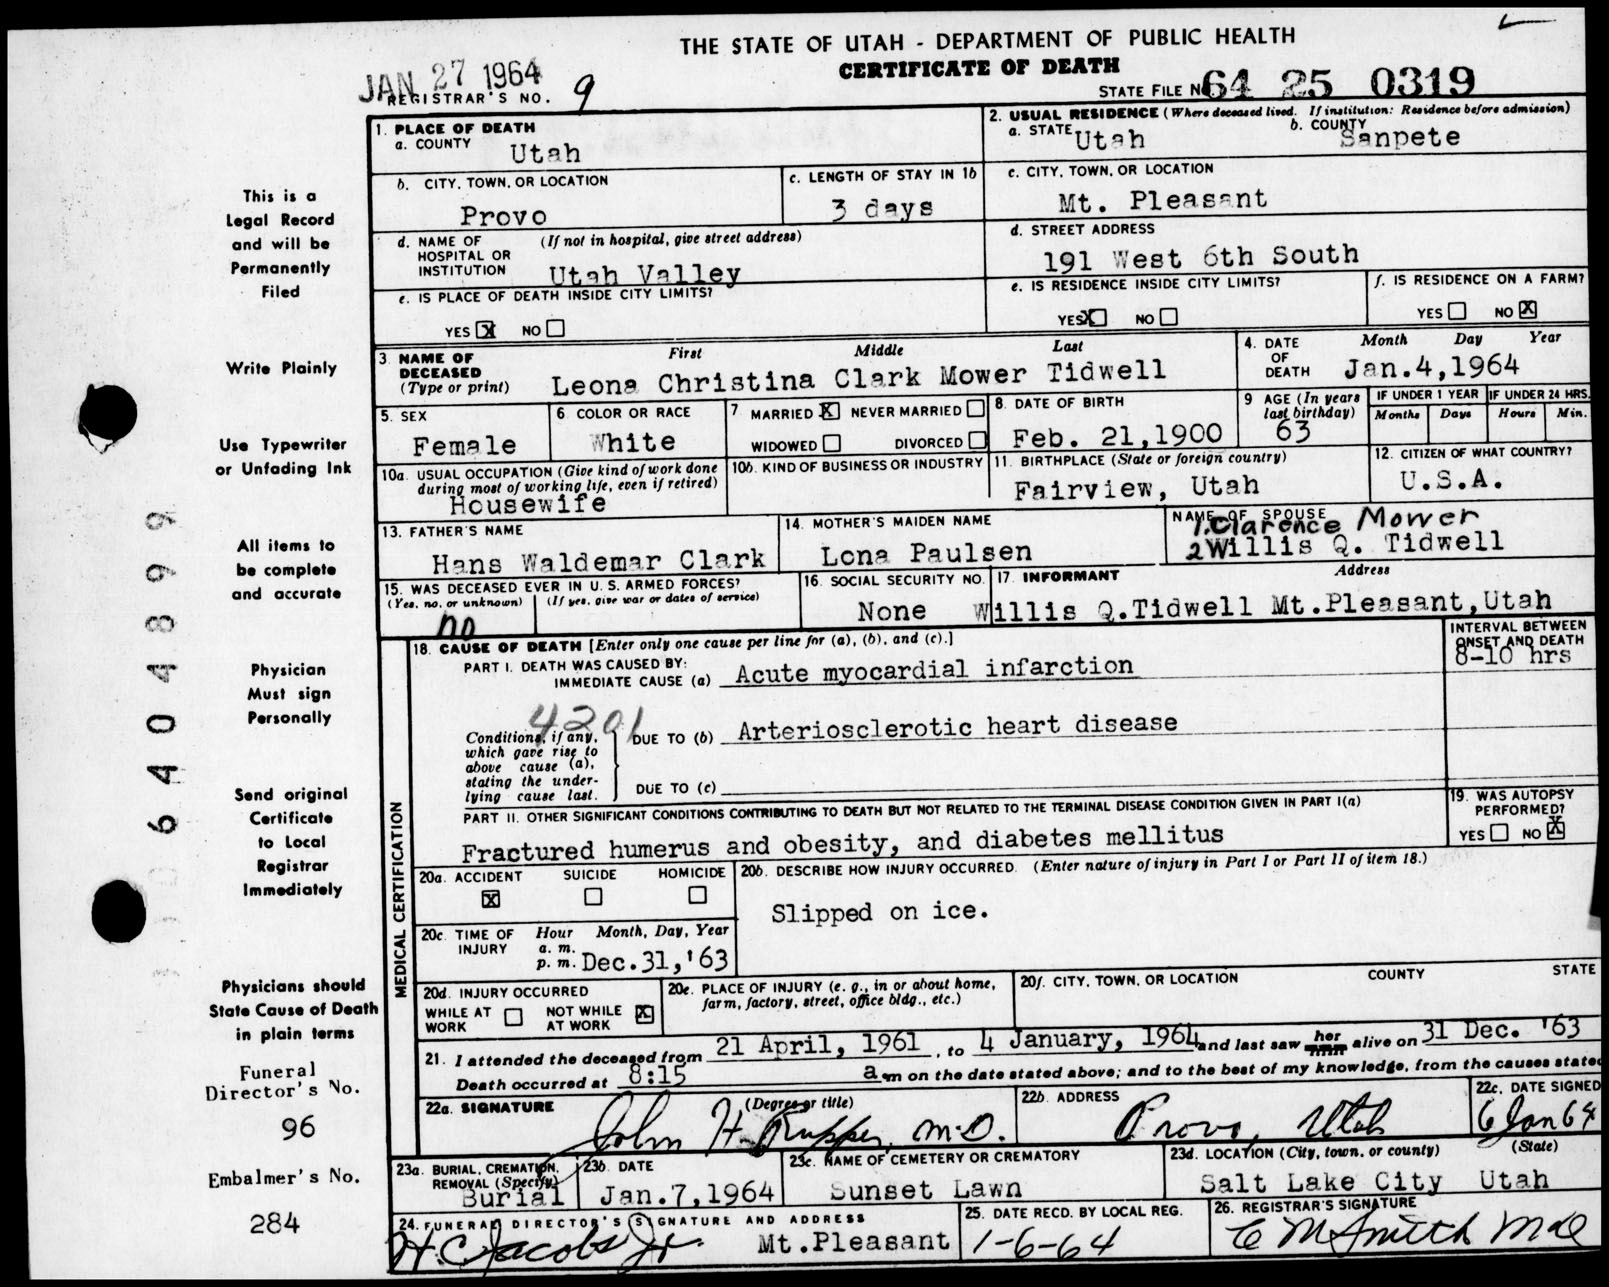 THE STATE OF UTAH - DEPARTMENT OF PUBLIC HEALTH
CERTIFICATE OF DEATH
JAN 27 1964
REGISTRAR'S NO. 9
STATE FILE NO. 64 25 0319
1. PLACE OF DEATH
a. COUNTY Utah
2. USUAL RESIDENCE (Where deceased lived. If institution: Residence before admission)
a. STATE Utah b. COUNTY Sanpete
b. CITY, TOWN, OR LOCATION Provo
c. LENGTH OF STAY IN 1b 3 days
c. CITY, TOWN, OR LOCATION
Mt. Pleasant
d. NAME OF HOSPITAL OR INSTITUTION (If not in hospital, give street address)
Utah Valley
d. STREET ADDRESS
191 West 6th South
e. IS PLACE OF DEATH INSIDE CITY LIMITS?
YES X NO
e. IS RESIDENCE INSIDE CITY LIMITS?
YES X NO
f. IS RESIDENCE ON A FARM?
YES NO X
3. NAME OF DECEASED (Type or print) First Middle Last
Leona Christina Clark Mower Tidwell
4. DATE OF DEATH Month Day Year
Jan.4,1964
5. SEX
Female
6. COLOR OR RACE
White
7. MARRIED X NEVER MARRIED
WIDOWED DIVORCED
8. DATE OF BIRTH
Feb. 21,1900
9. AGE (In years last birthday)
63
IF UNDER 1 YEAR
Months Days
IF UNDER 24 HRS.
Hours Min.
10a. USUAL OCCUPATION (Give kind of work done during most of working life, even if retired)
Housewife
10b. KIND OF BUSINESS OR INDUSTRY
11. BIRTHPLACE (State or foreign country)
Fairview, Utah
12. CITIZEN OF WHAT COUNTRY?
U.S.A.
13. FATHER'S NAME
Hans Waldemar Clark
14. MOTHER'S MAIDEN NAME
Lona Paulsen
NAME OF SPOUSE
1. Clarence Mower
2 Willis Q. Tidwell
15. WAS DECEASED EVER IN U.S. ARMED FORCES?
(Yes, no, or unknown) (If yes, give war or dates of service)
no
16. SOCIAL SECURITY NO.
None
17. INFORMANT Address
Willis Q.Tidwell Mt.Pleasant,Utah
18. CAUSE OF DEATH [Enter only one cause per line for (a), (b), and (c).]
INTERVAL BETWEEN ONSET AND DEATH
PART I. DEATH WAS CAUSED BY:
IMMEDIATE CAUSE (a) Acute myocardial infarction 8-10 hrs
4201
Conditions, if any, which gave rise to above cause (a), stating the underlying cause last.
DUE TO (b) Arteriosclerotic heart disease
DUE TO (c)
PART II. OTHER SIGNIFICANT CONDITIONS CONTRIBUTING TO DEATH BUT NOT RELATED TO THE TERMINAL DISEASE CONDITION GIVEN IN PART I(a)
Fractured humerus and obesity, and diabetes mellitus
19. WAS AUTOPSY PERFORMED?
YES NO X
MEDICAL CERTIFICATION
20a. ACCIDENT SUICIDE HOMICIDE
X
20b. DESCRIBE HOW INJURY OCCURRED. (Enter nature of injury in Part I or Part II of item 18.)
Slipped on ice.
20c. TIME OF INJURY Hour Month, Day, Year
a. m.
p. m. Dec.31,'63
20d. INJURY OCCURRED
WHILE AT WORK NOT WHILE AT WORK X
20e. PLACE OF INJURY (e. g., in or about home, farm, factory, street, office bldg., etc.)
20f. CITY, TOWN, OR LOCATION COUNTY STATE
21. I attended the deceased from 21 April, 1961, to 4 January, 1964 and last saw her alive on 31 Dec. '63
Death occurred at 8:15 a m on the date stated above; and to the best of my knowledge, from the causes stated
22a. SIGNATURE (Degree or title)
John H. Rupper, M.D.
22b. ADDRESS
Provo, Utah
22c. DATE SIGNED
6 Jan 64
23a. BURIAL, CREMATION, REMOVAL (Specify)
Burial
23b. DATE
Jan.7,1964
23c. NAME OF CEMETERY OR CREMATORY
Sunset Lawn
23d. LOCATION (City, town, or county) (State)
Salt Lake City Utah
24. FUNERAL DIRECTOR'S SIGNATURE AND ADDRESS
H.C. Jacobs Jr. Mt.Pleasant
25. DATE RECD. BY LOCAL REG.
1-6-64
26. REGISTRAR'S SIGNATURE
C M Smith
This is a
Legal Record
and will be
Permanently
Filed
Write Plainly
Use Typewriter
or Unfading Ink
All items to
be complete
and accurate
Physician
Must sign
Personally
Send original
Certificate
to Local
Registrar
Immediately
Physicians should
State Cause of Death
in plain terms
Funeral
Director's No.
96
Embalmer's No.
284
6404899